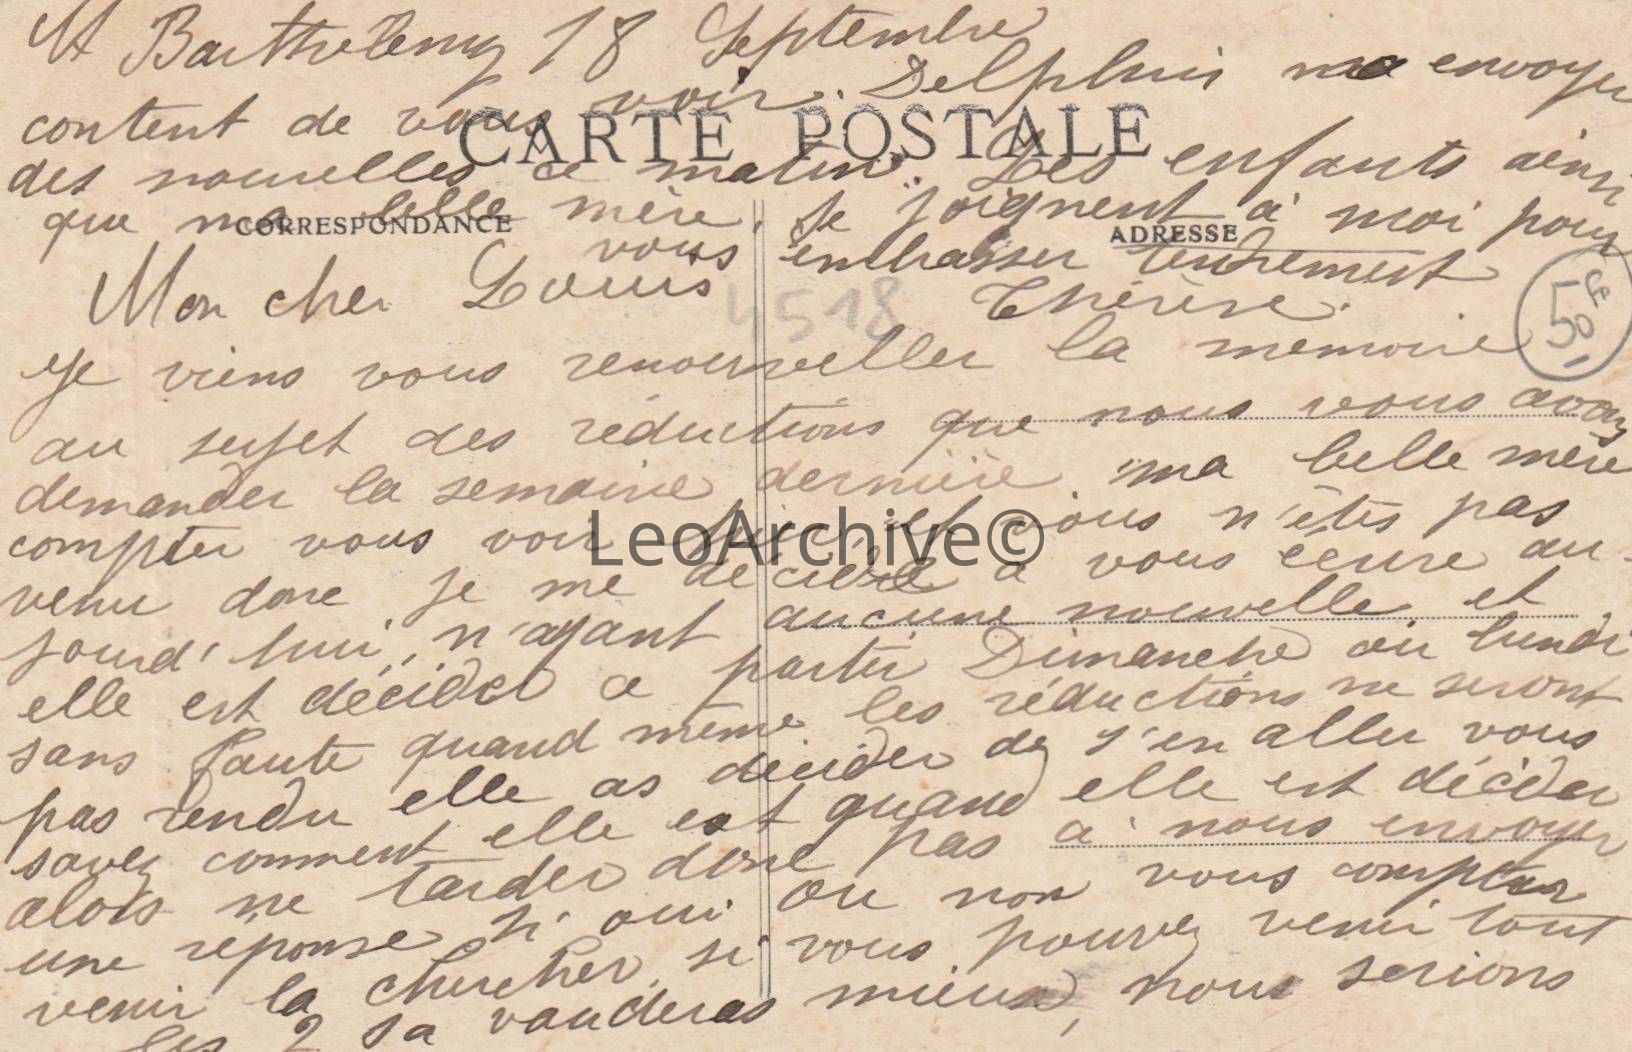 St Barthelemy 18 Septembre
Mon cher Louis
Je viens vous renouveller la memoire
au sujet des réductions que nous vous avons
demander la semaine dernière ma belle mère
compter vous voir hier, et vous n'êtes pas
venu donc je me décide à vous écrire au-
jourd'hui, n'ayant aucune nouvelle et
elle est décider a partir Dimanche ou lundi
sans faute quand même les réductions ne seront
pas rendu elle as décider de s'en aller vous
savez comment elle est quand elle est décider
alors ne tarder donc pas à nous envoyer
une réponse si oui ou non vous compter
venir la chercher, si vous pouvez venir tout
les 2 sa vauderas mieux, nous serions
content de vous voir. Delphin ma envoyer
des nouvelles ce matin. Les enfants ainsi
que ma belle mère, se joignent à moi pour
vous embrasser tendrement
Thérèse.
CARTE POSTALE
CORRESPONDANCE
ADRESSE
4518
50
LeoArchive©